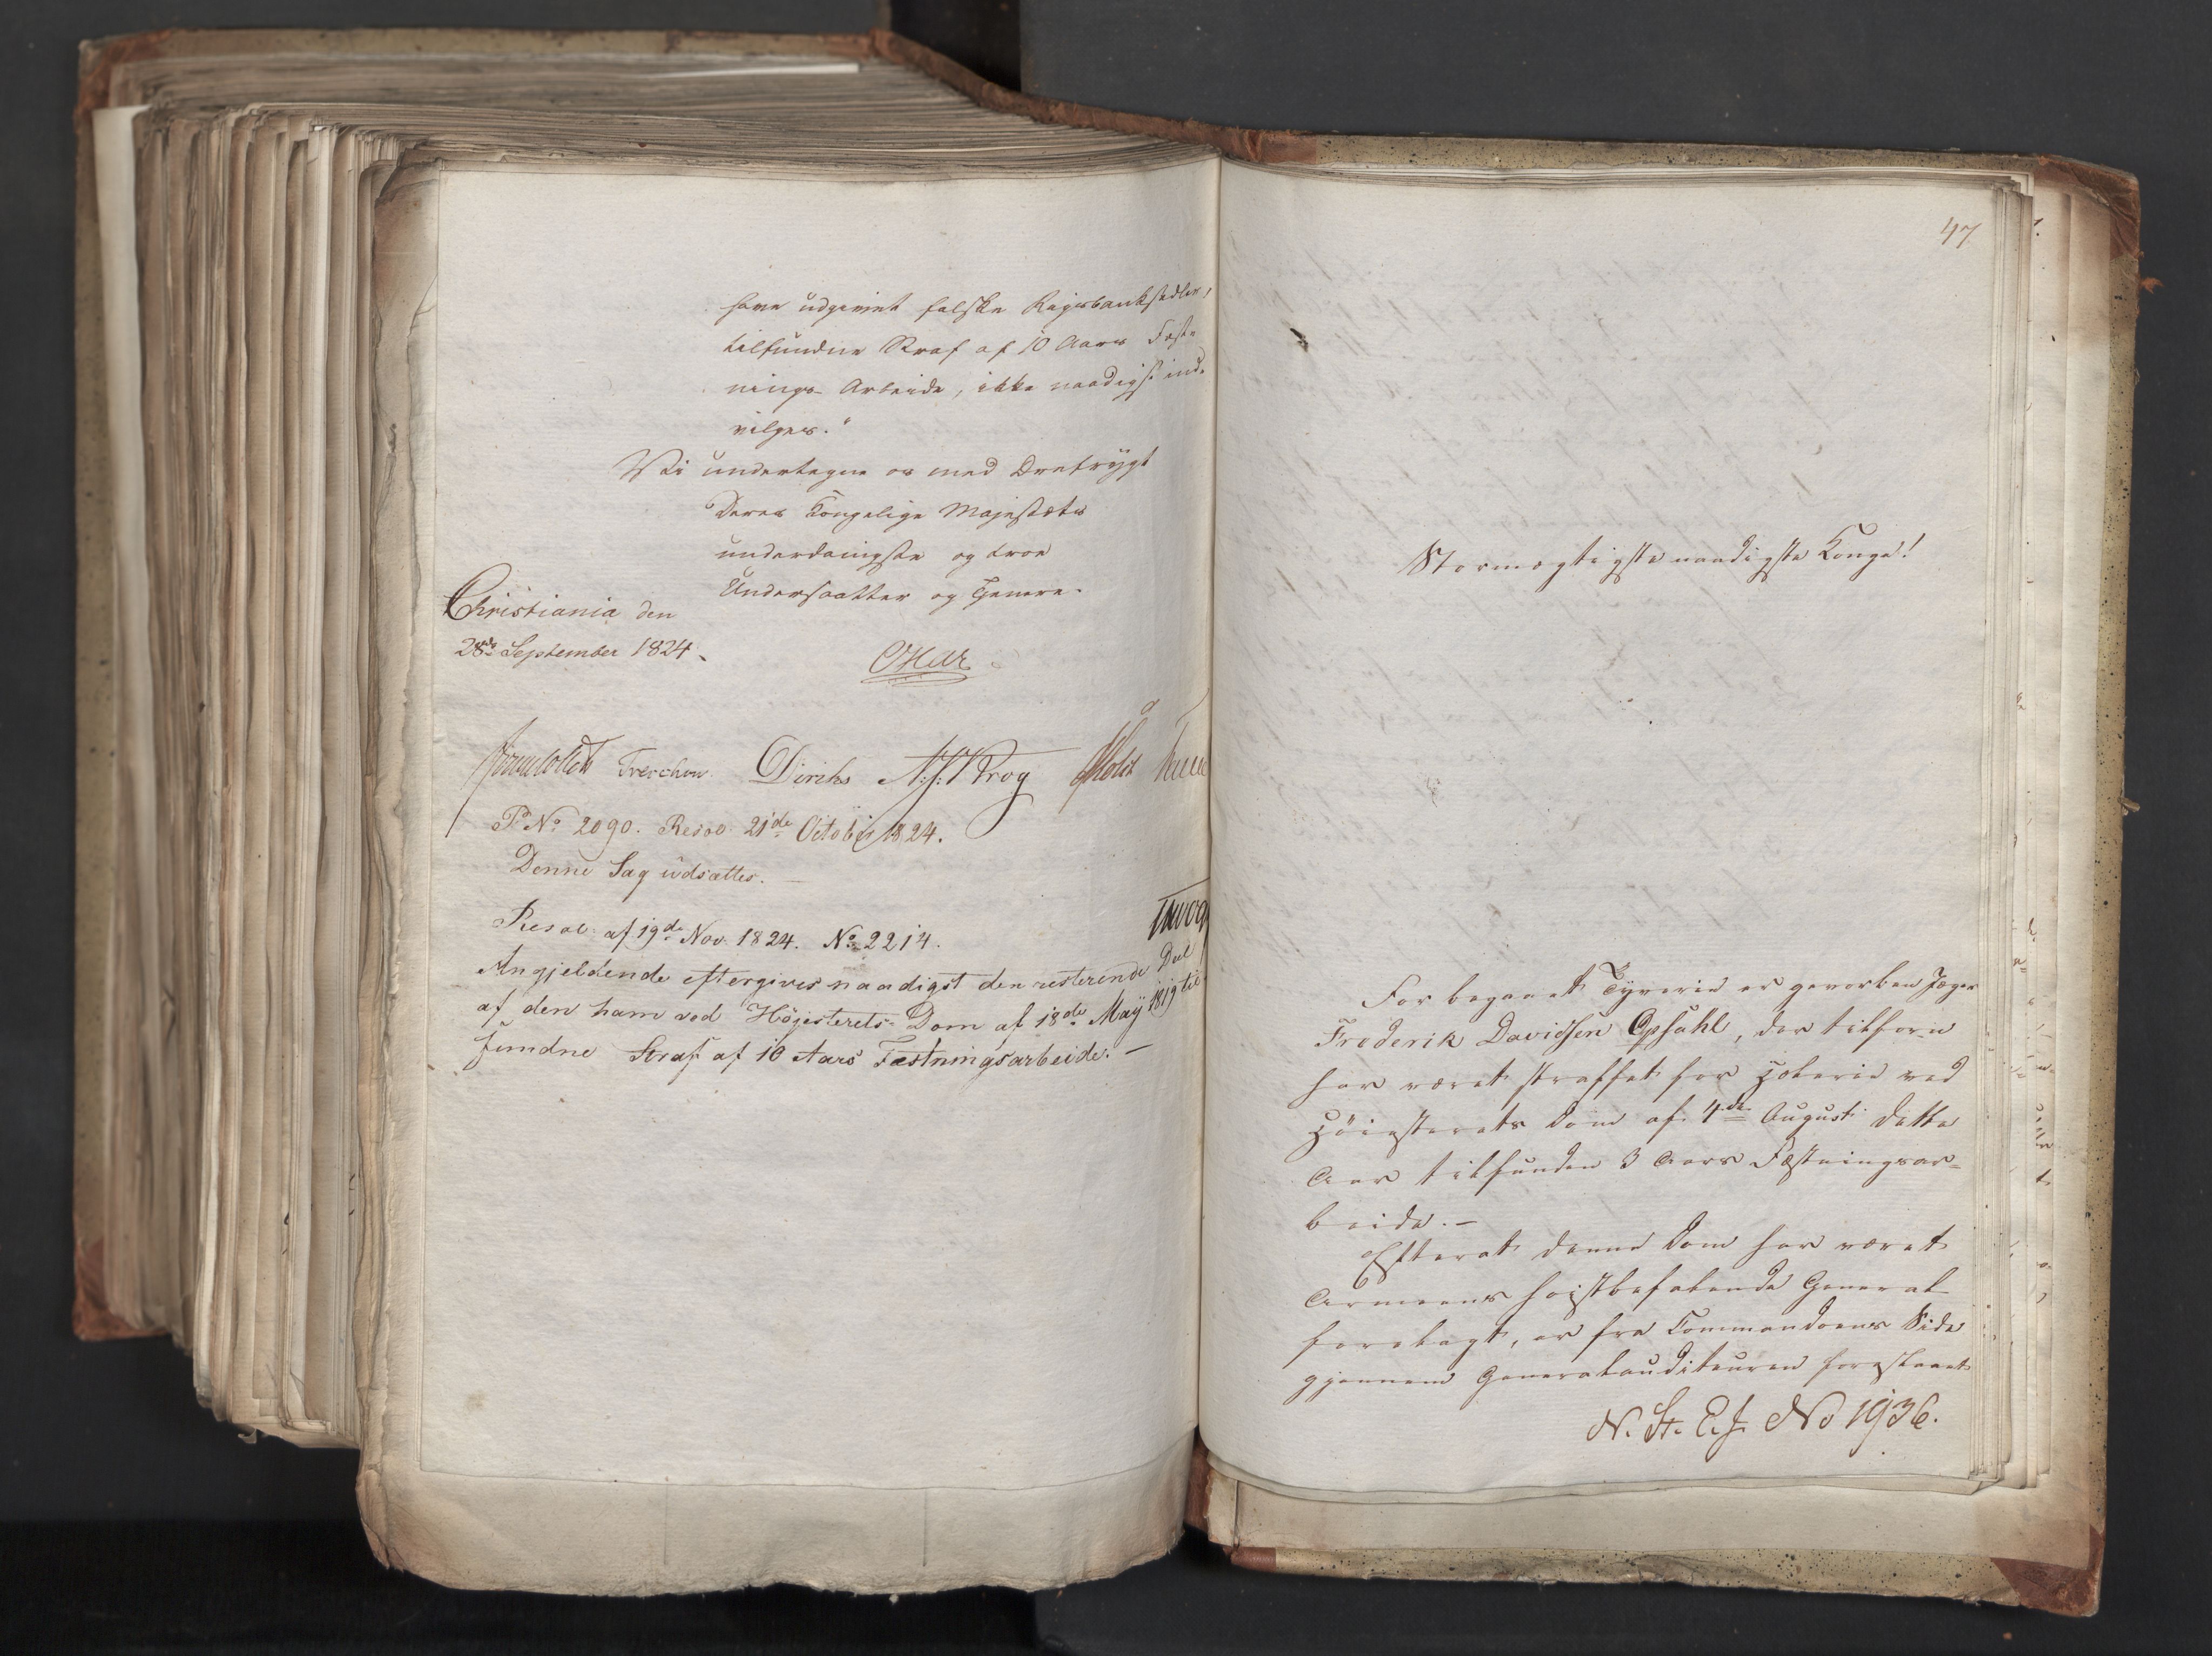 have udgivet falske Rigsbanksedler,
tilfundne Straf af 10 Aars Fæst-
nings Arbeide, ikke naadigst ind-
vilges."
Vi undertegne os med Dretrygt
Deres Kongelige Majestæts
underdanigste og troe
Undersaatter og Tjenere.
Christiania den
28de September 1824.
Treschow. Diriks Krog Holst
P. No 2090. Resol. 21de October 1824.
Denne Sag udsættes.
Resol. af 19de Nov. 1824. No 2214.
Angjeldende eftergives naadigst den resterende Deel
af den ham ved Høiesterets Dom af 18de May 1819 til-
fundne Straf af 10 Aars Fæstningsarbeide. —
47
Stormægtigste naadigste Konge!
For begaaet Tyverie er gevorben Jæger
Frederik Davidsen Opsahl, der tilforn
har været straffet for Hælerie ved
Høiesterets Dom af 4de August dette
Aar tilfunden 3 Aars Fæstningsar-
beide. —
Efterat denne Dom har været
Armeens høistbefalende General
forelagt, er fra Commandoens Side
gjennem Generalauditeuren forestaaet
N. St. E. J. No 1936.